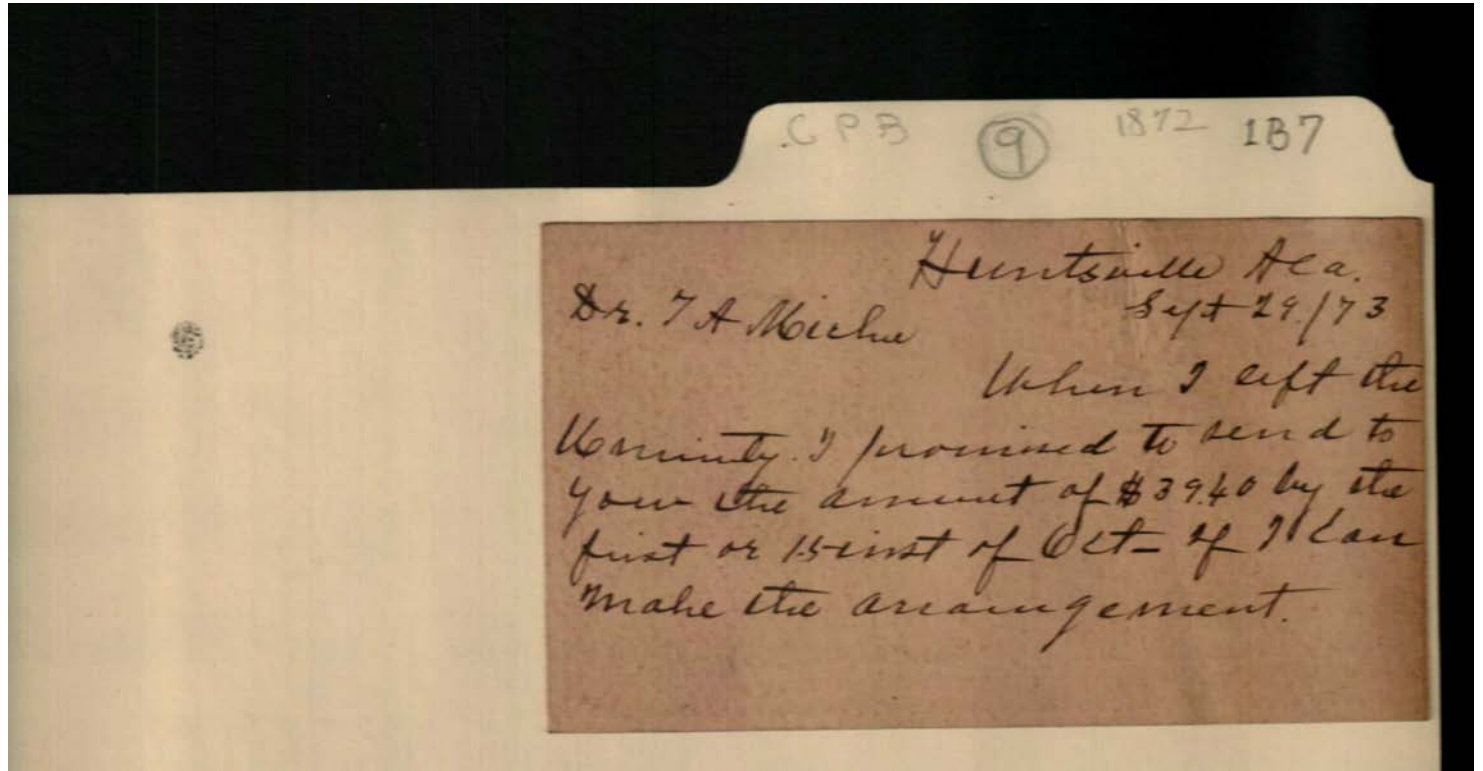 C P B 9 1872 1B7
Huntsville Ala.
Sept 29/73
Dr. T A Michie
When I left the
I promised to send to
you the amount of $39.40 by the
first or 15 inst of Oct- if I can
make the arrangement.